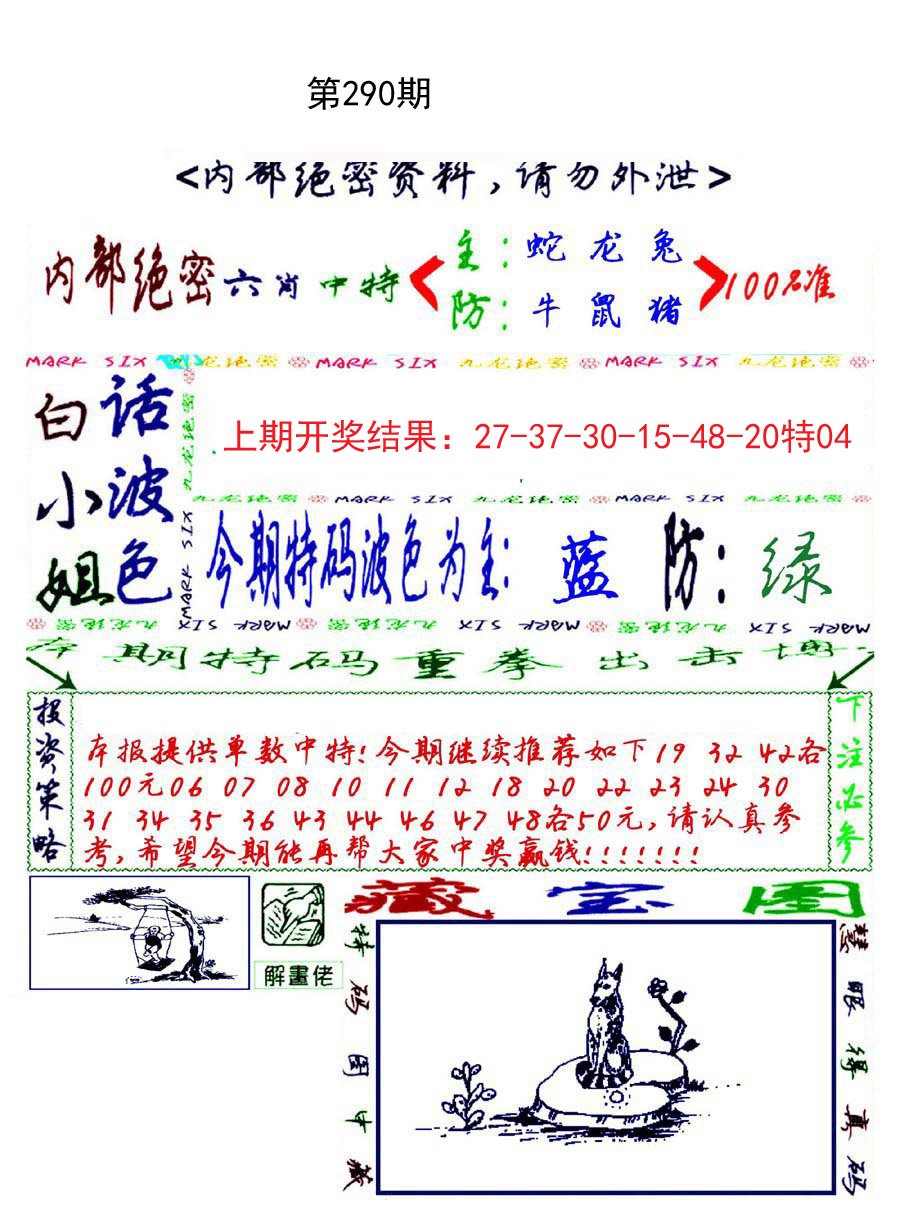 第290期
<内部绝密资料,请勿外泄>
内部绝密六肖中特
主:蛇龙兔
防:牛鼠猪
100%准
MARK SIX 九龙绝密 MARK SIX 九龙绝密 MARK SIX 九龙绝密
白小姐
话波色
九龙绝密
MARK SIX
上期开奖结果：27-37-30-15-48-20特04
九龙绝密 MARK SIX 九龙绝密 MARK SIX 九龙绝密
今期特码波色为主:蓝 防:绿
九龙绝密 MARK SIX 九龙绝密 MARK SIX 九龙绝密 MARK SIX
本期特码重拳出击
投资策略
本报提供单数中特!今期继续推荐如下19 32 42各
100元06 07 08 10 11 12 18 20 22 23 24 30
31 34 35 36 43 44 46 47 48各50元,请认真参
考,希望今期能再帮大家中奖赢钱!!!!!!!
下注必参
解畫佬
藏宝图
特码图中藏
慧眼得真码